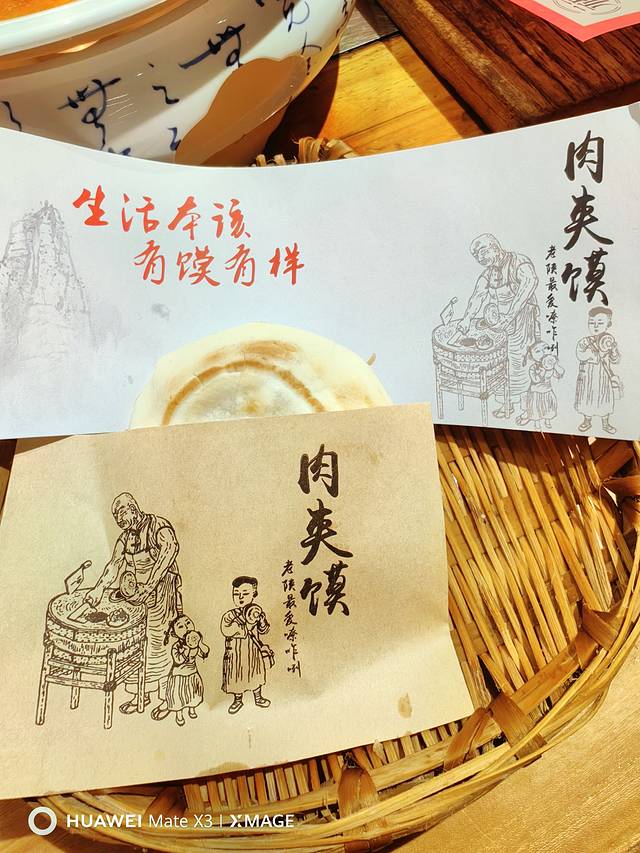 生活本该
有馍有样
肉夹馍
老陕最爱嘹咋咧
肉夹馍
老陕最爱嘹咋咧
HUAWEI Mate X3 | XMAGE